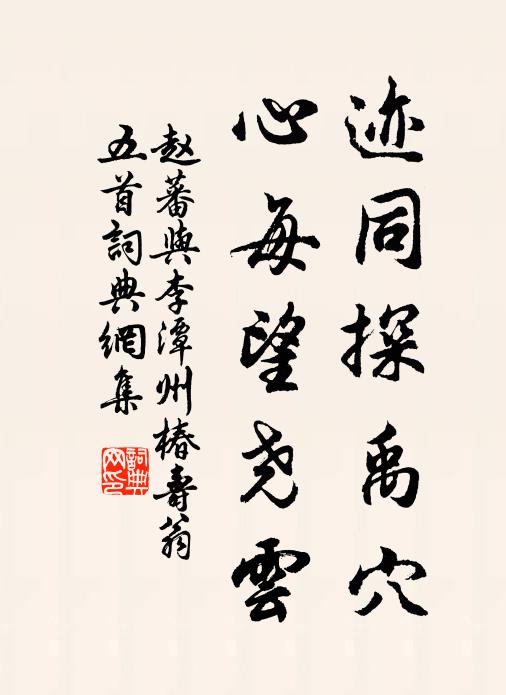 迹同探禹穴
心每望尧雲
赵蕃與李潭州椿壽翁
五首詞典網集
詞典网印